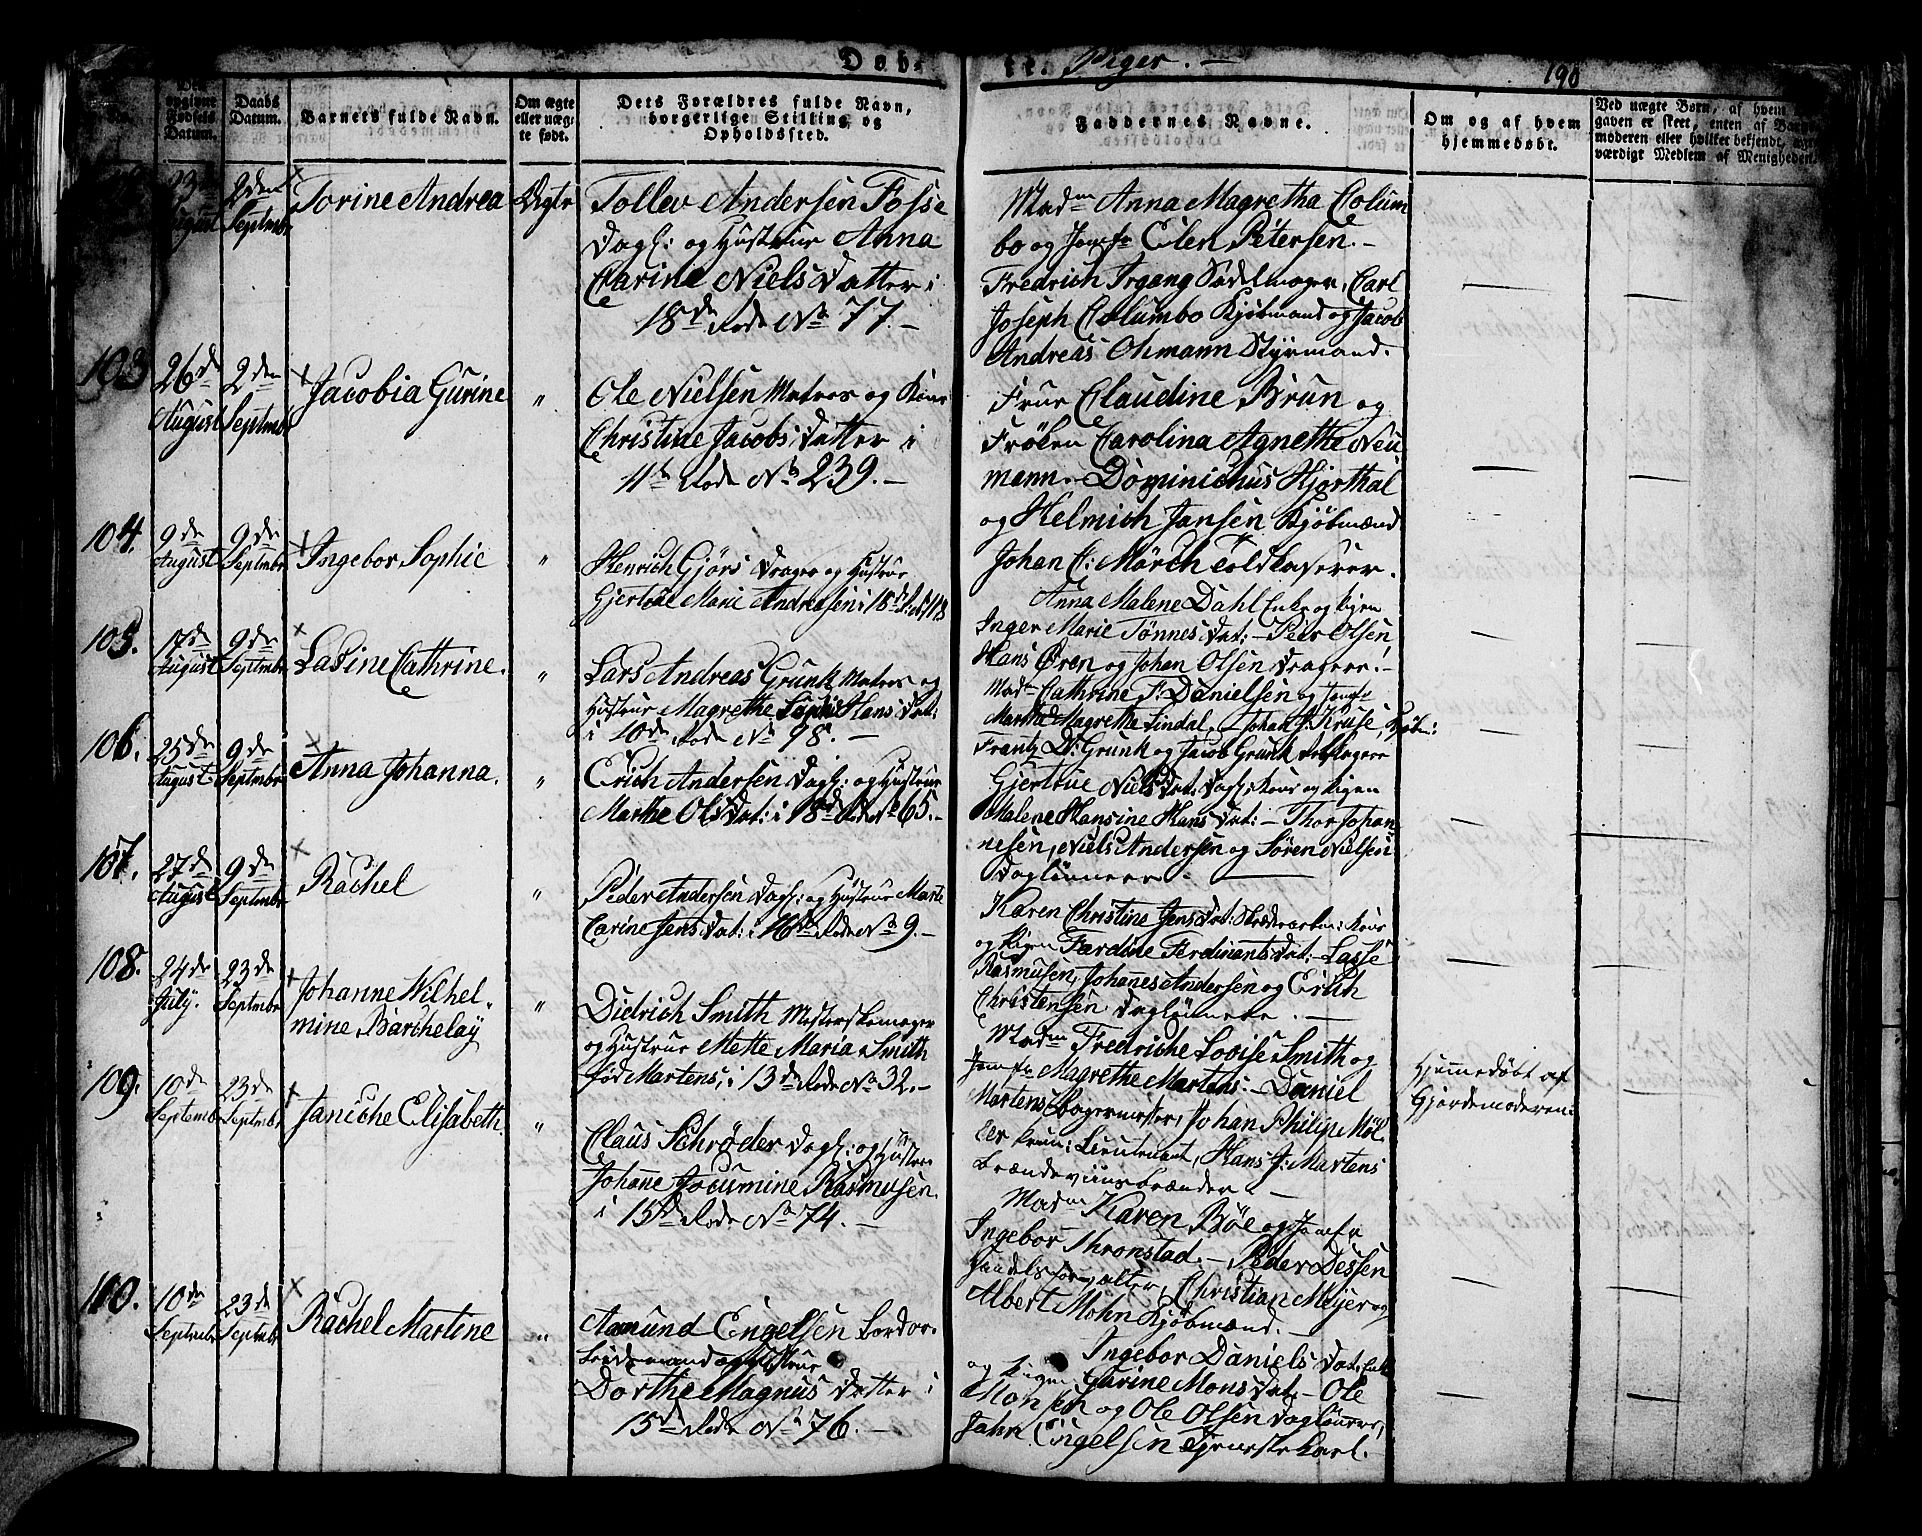 Døb- te. Piger. —
190
No.
Den opgivne Fødsels Datum.
Daabs Datum.
Barnets fulde Navn.
Om ægte eller uæg-te født.
Dets Forældres fulde Navn, borgerlige Stilling og Opholdssted.
Faddernes Navne.
Om og af hvem hjemmedøbt.
Ved uægte Børn, af hvem
gaven er skeet, enten af Barne-
moderen eller hvilket bekjendt,
værdigt Medlem af Menigheden.
23de August
2den Septmbr
Torine Andrea
Ægte
Tollev Andersen Fosse
Dagl: og Hustrue Anna
Carine Niels Datter i
18de Rode No 77. —
Madm Anna Magretha Colum
bo og Jomfr Elen Petersen. —
Fredrich Irgang Sadelmager, Carl
Joseph Columbo Kjøbmand og Jacob
Andreas Ohmann Styrmand.
103
26de August
2den Septmbr
Jacobia Gurine
"
Ole Nielsen Matros og Kone
Christine Jacobs Datter i
11te Rode No 239. —
Frue Claudine Brun og
Frøken Carolina Agnethe Neu
mann. — Dominichus Hjorthal
og Helmich Jansen Kjøbmænd
Johan C: Mörch Toldkasserer.
104.
9de August
9de Septmbr
Ingebor Sophie
"
Henrich Gjörs Drager og Hustrue
Gjertrue Marie Andreasen i 18de Rode No 113
Anna Malene Dahl Enke og Pigen
Inger Marie Tönnes Dat: — Peer Olsen
Hans Ören og Johan Olsen Dragere. —
105.
17de August
9de Septmbr
Lasine Cathrine.
"
Lars Andreas Grunk Matros og
Hustrue Magrethe Sophie Hans Dat:
i 10de Rode No 98. —
Mad Cathrine F: Danielsen og Jomfr
Marthe Magrethe Lindal, Johan J. Kruse, Kjøbm:
Frantz D: Grunk og Jacob Grunk
106.
25de August
9de Septmbr
Anna Johanna.
"
Erich Andersen Dagl: og Hustrue
Marthe Ols Dat: i 18de Rode No 65. —
Gjertrue Niels Dat: Dagl: Kone og Pigen
Malene Hansine Hans Dat: — Thor Johan
nesen, Niels Andersen og Søren Nielsen
Daglønnere —
107.
27de August
9de Septmbr
Rachel
"
Peder Andersen Dagl: og Hustrue Marte
Carine Jens Dat: i 16de Rode No 9. —
Karen Christine Jens Dat: Skrædderarbm: Kone
og Pigen Fardine Ferdinants Dat: — Lasse
Rasmusen, Johanes Andersen og Erich
Christensen Daglønnere. —
108.
24de July.
23de Septmbr
Johanne Wilhel-
mine Barchelay
"
Didrich Smith Mesterskomager
og Hustrue Mette Maria Smith
fød Martens, i 13de Rode No 32. —
Madm Fredriche Lovise Smith og
Jomfr Magrethe Martens: — Daniel
Martens Bagermester, Johan Philip Møl
ler Prem: Lieutenant, Hans J: Martens
Brændeviinsbrænder. —
Hjemmedøbt af
Gjordemoderen.
109.
10de Septembr
23de Septmbr
Janiche Elisabeth.
"
Claus Schrøder Dagl: og Hustrue
Johane Jocumine Rasmusen.
i 15de Rode No 74. —
Madm Karen Böe og Jomfr
Ingebor Thronstad. — Peder Dessen
Handelsforvalter, Christian Meyer og
Albert Mohn Kjøbmænd. —
110.
10de Septmbr
23de Septmbr
Rachel Martine
"
Aamund Engelsen
og Hustrue
Dorthe Magnus Datter i
15de Rode No 76. —
Ingebor Daniels Dat: Enke
og Pigen Carine Mons Dat: — Ole
Monsen og Ole Olsen Daglønnere,
Jahn Engelsen Tjenestekarl.